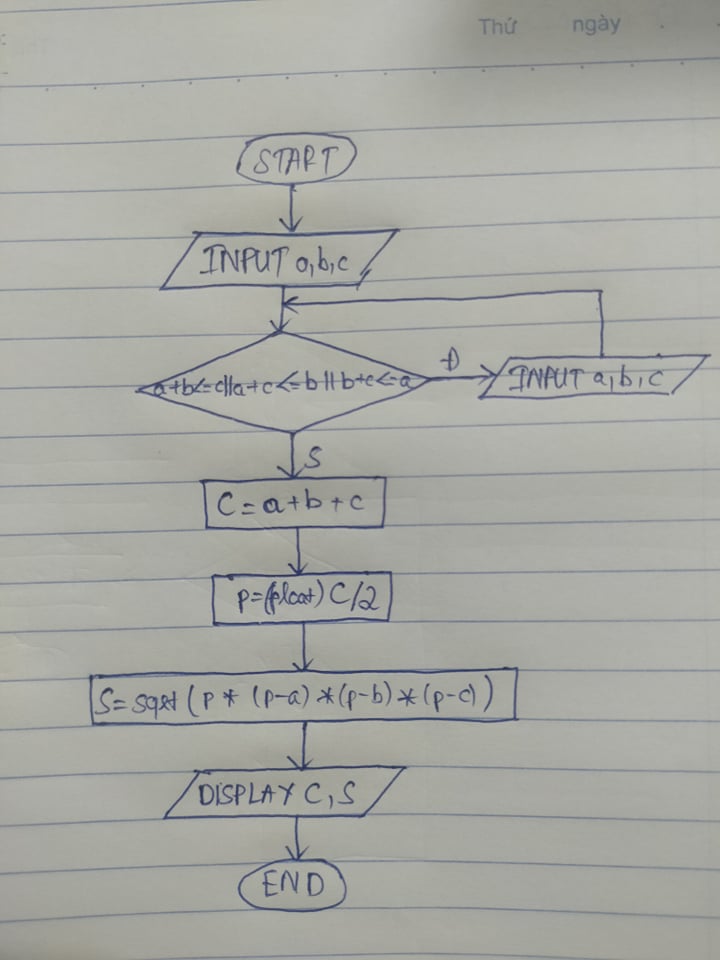 Thứ ngày
START
INPUT a,b,c
a+b<=c||a+c<=b||b+c<=a
Đ
INPUT a,b,c
S
C=a+b+c
p=(float) C/2
S=sqrt(p*(p-a)*(p-b)*(p-c))
DISPLAY C,S
END